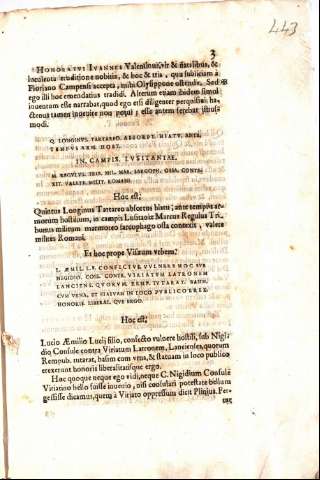 443
3
HONORATVS IVANNES Valentinus, vir & natalibus, &
luculenta eruditione nobilis, & hoc & tria, quæ subiiciam à
Floriano Campensi accepta, mihi Olysippone ostendit. Sed
ego illi hoc emendatius tradidi. Alterum etiam ibidem simul
inuentum esse narrabat, quod ego etsi diligenter perquisiui, ha-
ctenus tamen inuenire non potui; esse autem ferebat istius-
modi.
Q. LONGINVS. TARTAREO. ABSORPT. HIATV. ANTE.
TEMPVS ARM. HOST.
IN. CAMPIS. LVSITANIAE.
M. REGVLVS. TRIB. MIL. MAR. SARCOPH. OSSA. CONTE-
XIT. VALETE. MILIT. ROMANI.
Hoc est;
Quintus Longinus Tartareo absortus hiatu; ante tempus ar-
mentum hostilium, in campis Lusitaniæ Marcus Regulus Tri-
bunus militum marmoreo sarcophago ossa contexit, valete
milites Romani.
Et hoc prope Viseum vrbem:
L. ÆMIL. L.F. CONFECTVS. VVLNERE HOC SVB
NIGIDIO. COSS. CONTR. VIRIATVM LATRONEM
LANCIENS. QVORVM. REMP. TVTARAT. BASIM.
CVM VRNA, ET STATVAM IN LOCO PVBLICO EREX.
HONORIS LIBERAL. QVE ERGO.
Hoc est;
Lucio Æmilio Lucij filio, confecto vulnere hostili, sub Nigi-
dio Consule contra Viriatum Latronem, Lancienses, quorum
Rempub. tutarat, basim cum vrna, & statuam in loco publico
erexerunt honoris liberalitatisque ergo.
Hoc quoque neque ego vidi, neque C. Nigidium Consulẽ
Viriatino bello fuisse inuenio, nisi consulari potestate bellum
gessisse dicamus, quem à Viriato oppressum dicit Plinius. Fer-
tur